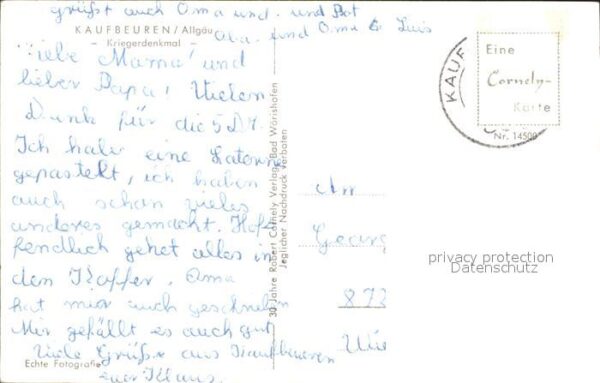 grüßt auch Oma und. und Bat
KAUFBEUREN / Allgäu
Ola. und Oma & Luis
- Kriegerdenkmal -
Liebe Mama! und
lieber Papa! Vielen
Dank für die 5 DM.
Ich habe eine Laterne
gepastelt, ich haben
auch schon vieles
anderes gemacht. Hof-
fendlich gehet alles in
den Koffer. Oma
hat mir auch geschrieben
Mir gefällt es auch gut
Viele Grüße aus Kaufbeuren
euer Klaus.
Echte Fotografie
30 Jahre Robert Cornely Verlag, Bad Wörishofen
Jeglicher Nachdruck verboten
KAUF
Eine
Cornely-
Karte
Nr. 14500
An
Georg
873
privacy protection
Datenschutz